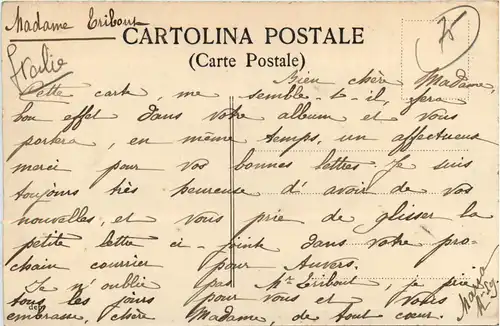 Madame Eribout
CARTOLINA POSTALE
(Carte Postale)
Italie
75
Bien chère Madame,
Cette carte, me semble-t-il, fera
bon effet dans votre album et vous
portera, en même temps, un affectueux
merci pour vos bonnes lettres. Je suis
toujours très heureuse d'avoir de vos
nouvelles, et vous prie de glisser la
petite lettre ci-jointe dans votre pro-
chain courrier pour Anvers.
Je n'oublie pas Mr Eribout, je prie
tous les jours pour vous et vous
embrasse, chère Madame, de tout cœur.
Maria